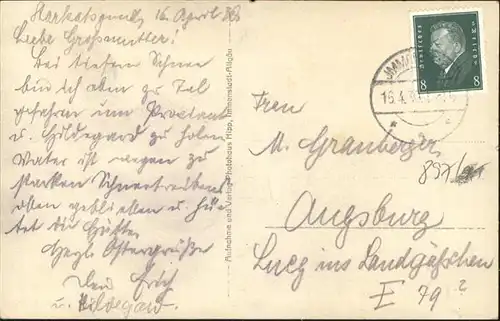 16. April
Liebe Großmutter!
Bei tiefem Schnee
bin ich eben zu Tal
gefahren um Proviant
u. Hildegard zu holen.
Vater ist wegen zu
starken Schneetreibens
oben geblieben u. hü-
tet die Hütte.
Herzl. Ostergrüße
Dein Erich
u. Hildegard.
Aufnahme und Verlag Photohaus Hipp, Immenstadt-Allgäu
Deutsches Reich
8 8
16.4.
Frau
M. Granberger
Augsburg
Lueg ins Landgäßchen
E 79